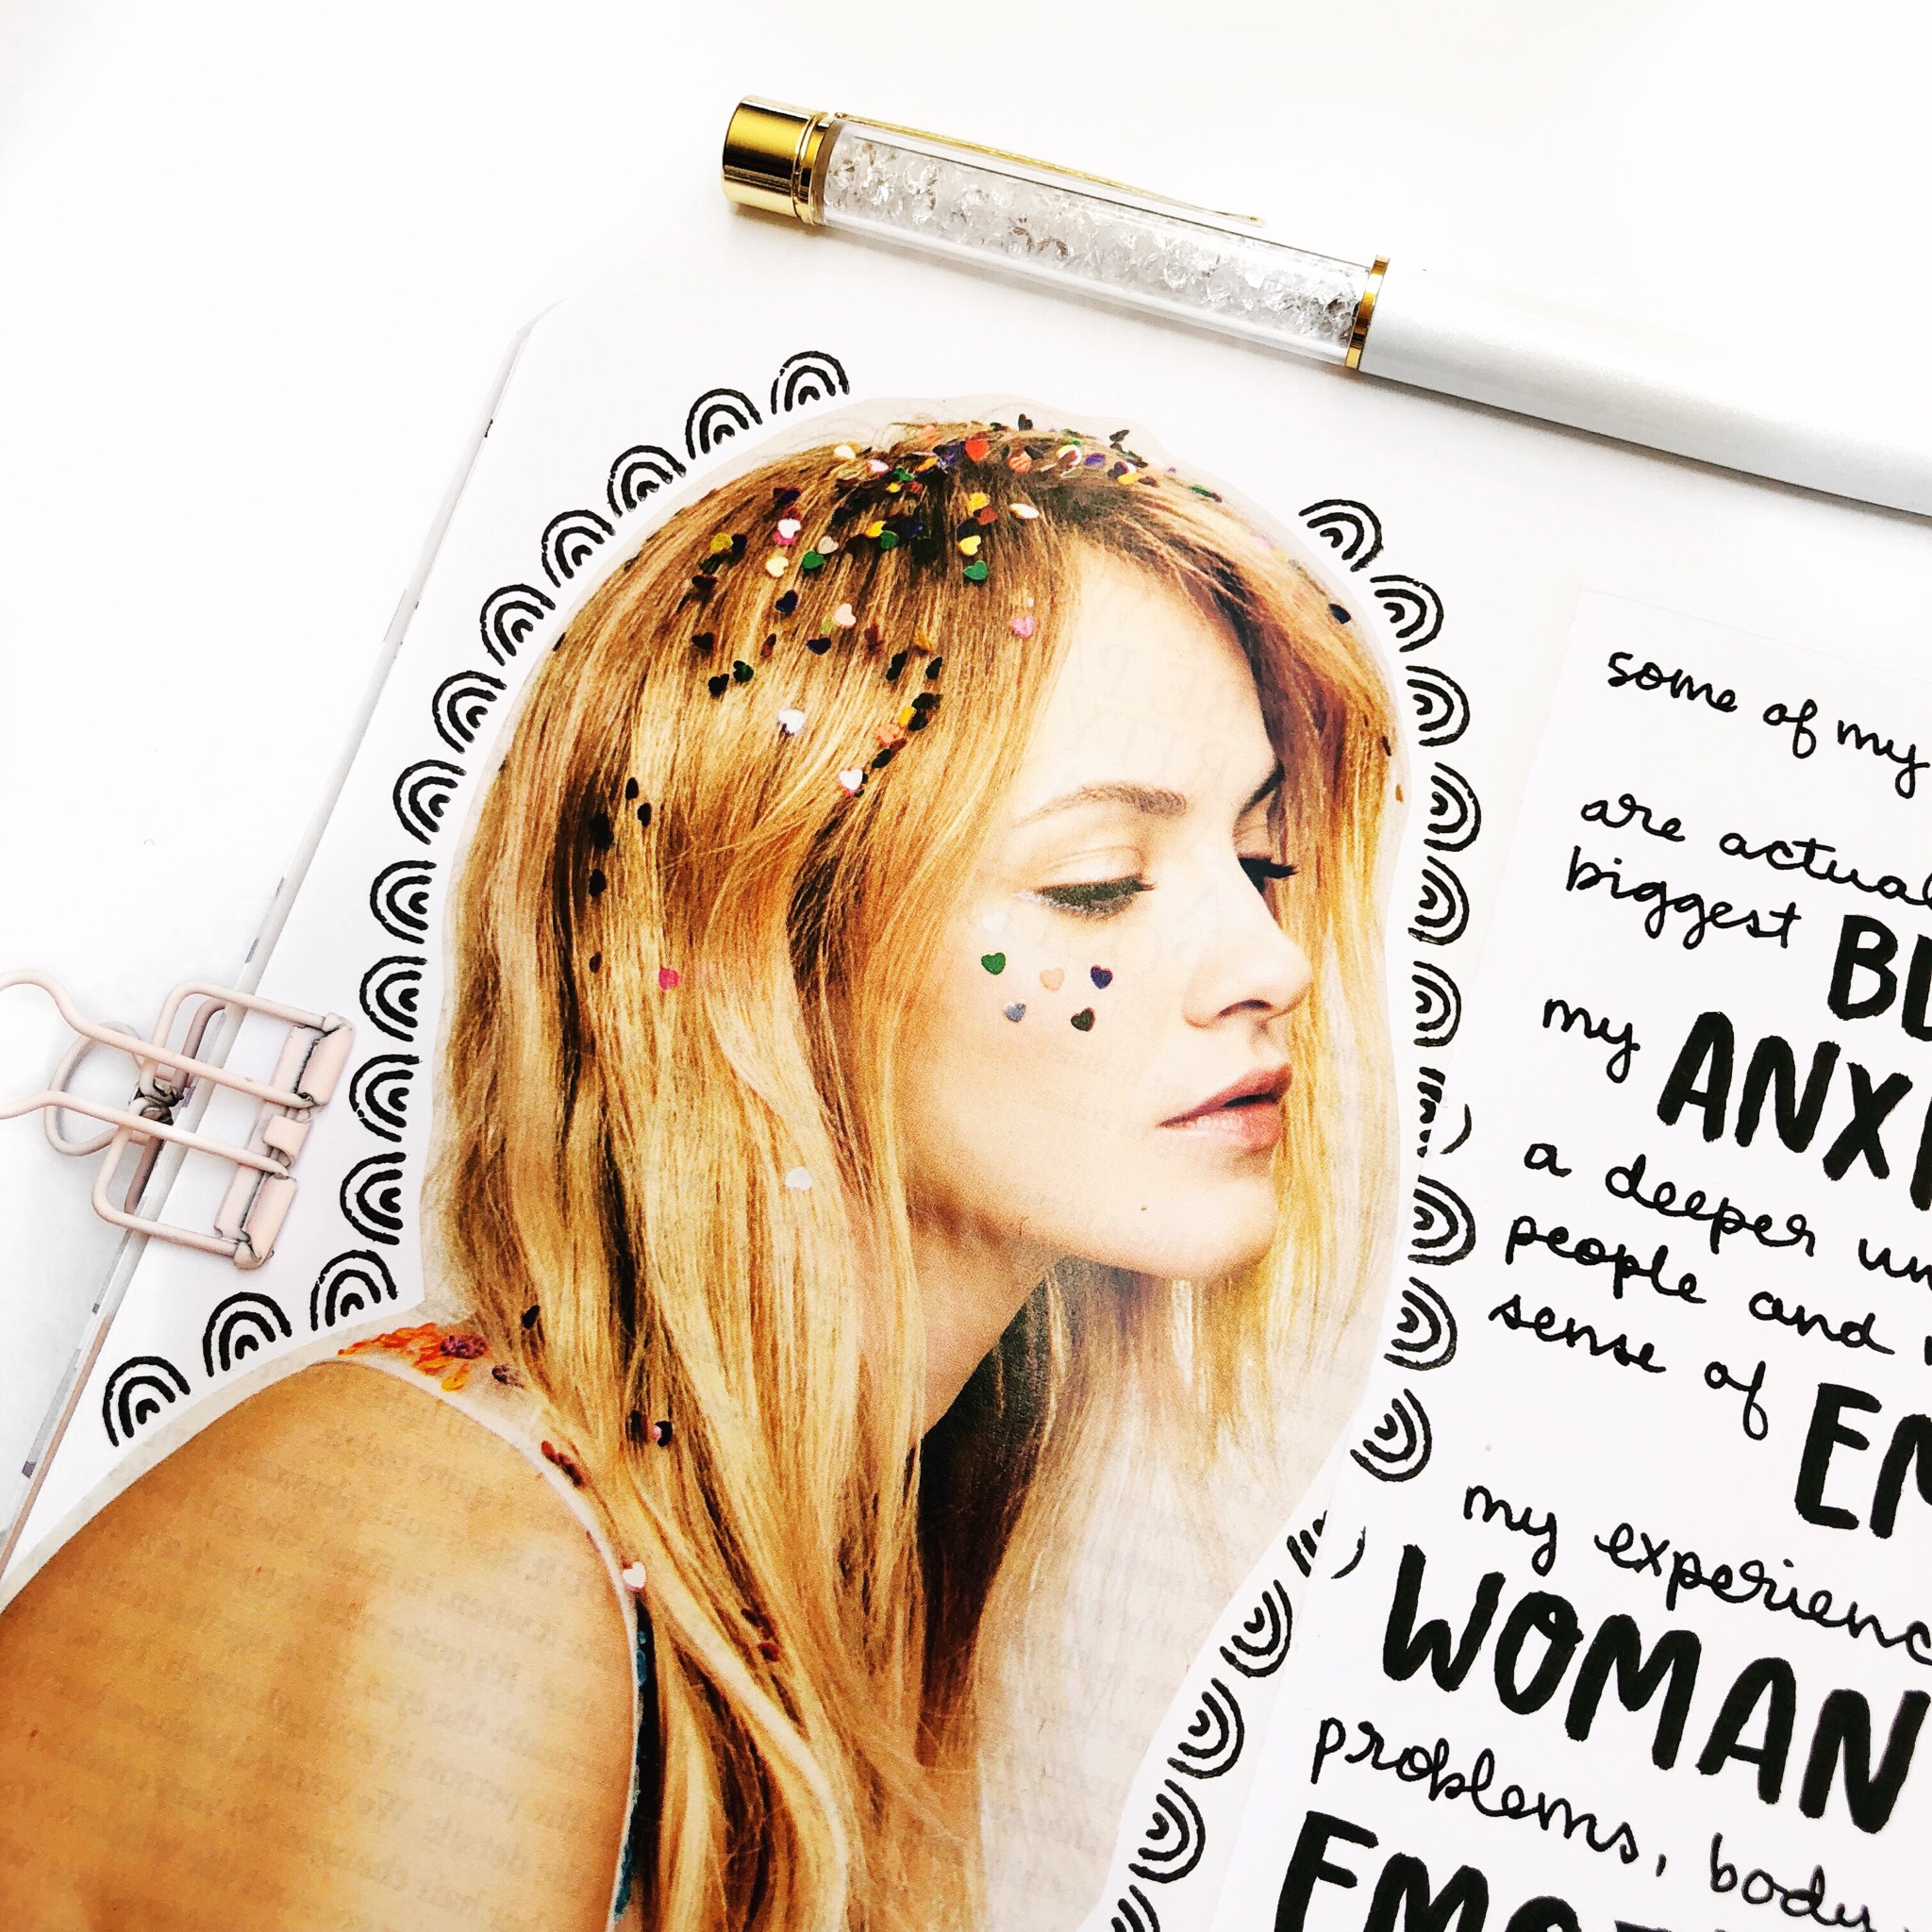 some of my
are actual
biggest BL
my ANXI
a deeper un
people and
sense of EM
my experienc
WOMAN
problems, body
EMOT